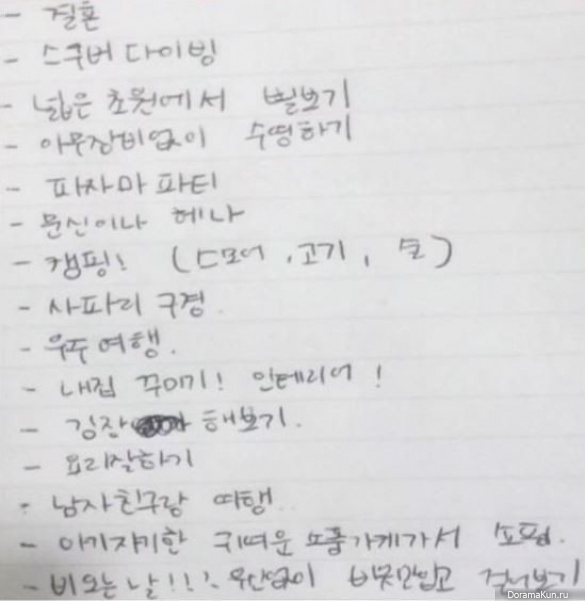 - 결혼
- 스쿠버 다이빙
- 넓은 초원에서 별보기
- 아무장비없이 수영하기
- 파자마 파티
- 문신이나 헤나
- 캠핑! (스모어, 고기, 술)
- 사파리 구경
- 우주 여행.
- 내집 꾸미기! 인테리어!
- 김장 해보기.
- 요리잘하기
- 남자친구랑 여행
- 아기자기한 귀여운 소품가게가서 쇼핑.
- 비오는 날!!! 우산없이 비옷만입고 걸어보기
DoramaKun.ru